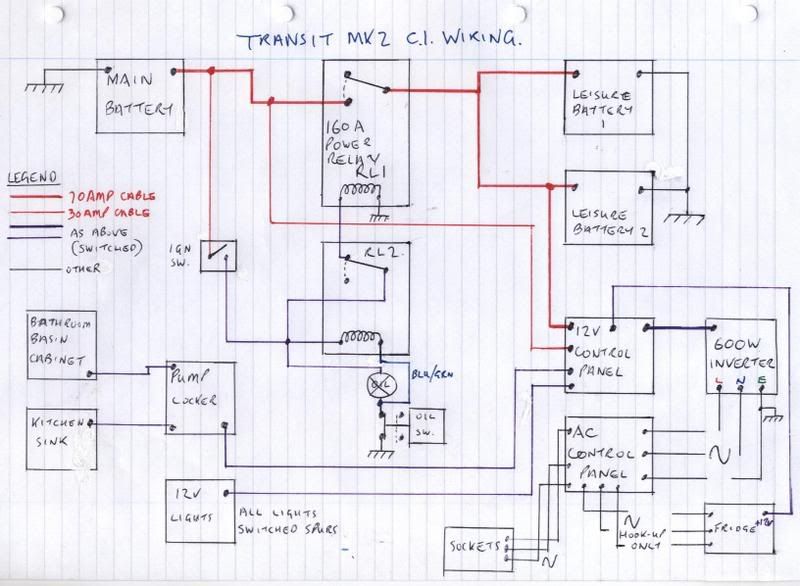 TRANSIT MK2 C.I. WIRING.
MAIN
BATTERY
160A
POWER
RELAY
RL1
LEISURE
BATTERY
1
LEISURE
BATTERY 2
LEGEND
70AMP CABLE
30AMP CABLE
AS ABOVE
(SWITCHED)
OTHER
IGN
SW.
RL2.
BATHROOM
BASIN
CABINET
PUMP
LOCKER
KITCHEN
SINK
BLU/GRN
OIL
OIL
SW.
12V
CONTROL
PANEL
600W
INVERTER
L N E
AC
CONTROL
PANEL
12V
LIGHTS
ALL LIGHTS
SWITCHED SPURS
SOCKETS
HOOK-UP
ONLY
FRIDGE +12V